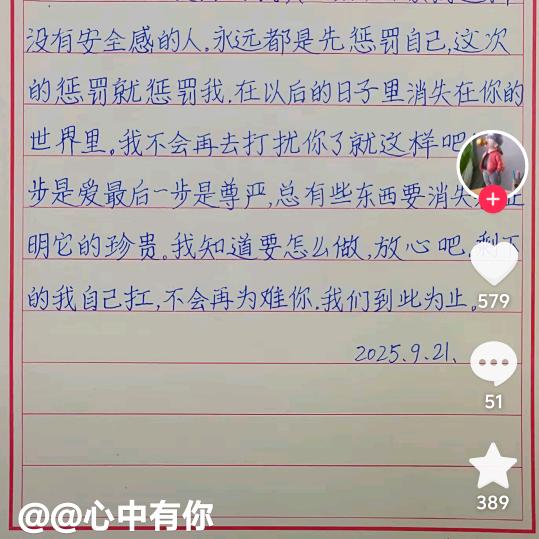 没有安全感的人,永远都是先惩罚自己,这次
的惩罚就惩罚我.在以后的日子里消失在你的
世界里。我不会再去打扰你了就这样吧
步是爱最后一步是尊严,总有些东西要消失
明它的珍贵。我知道要怎么做,放心吧,剩下
的我自己扛,不会再为难你.我们到此为止。
2025.9.21.
579
51
389
@@心中有你